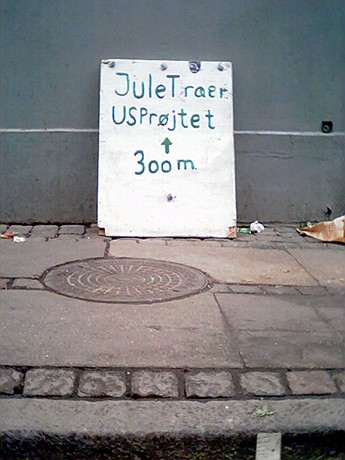 JuleTraer
USPrøjtet
↑
300m.